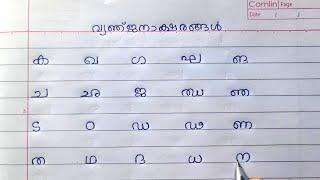 Camlin Page
Date / /
വ്യഞ്ജനാക്ഷരങ്ങൾ
ക ഖ ഗ ഘ ങ
ച ഛ ജ ഝ ഞ
ട ഠ ഡ ഢ ണ
ത ഥ ദ ധ ന